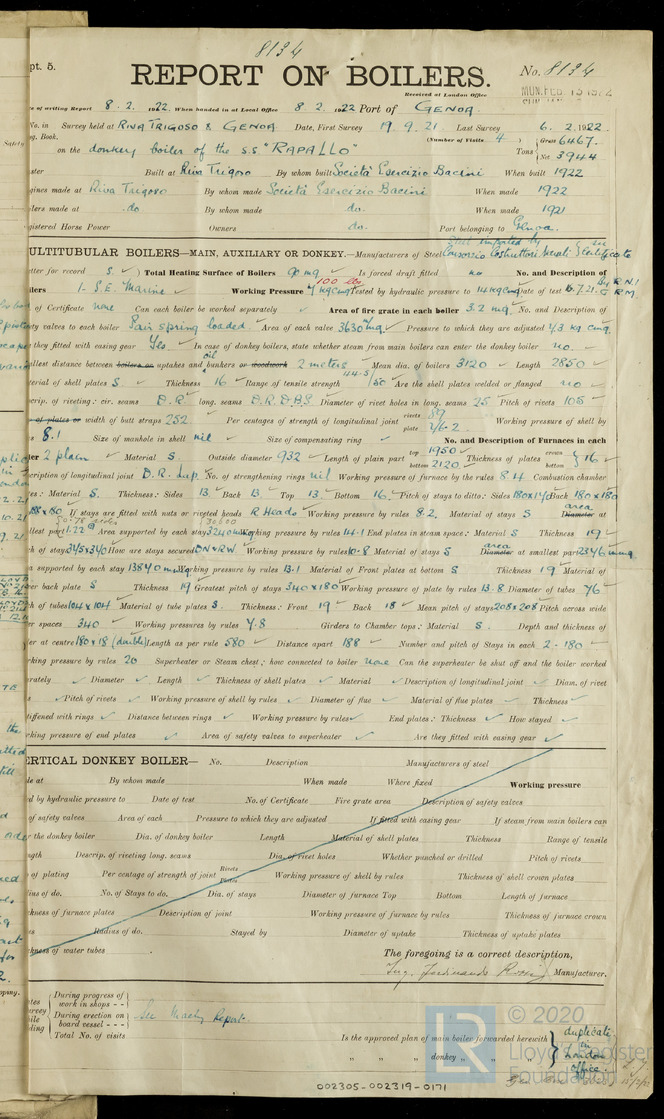 8134
pt. 5.
REPORT ON BOILERS.
No. 8134
Received at London Office
MON. FEB 13 1922
of writing Report 8. 2. 1922 When handed in at Local Office 8 2. 1922 Port of GENOA
No. in Survey held at RIVA TRIGOSO & GENOA Date, First Survey 19. 9. 21 Last Survey 6. 2. 1922
g. Book. (Number of Visits 4)
on the donkey boiler of the S.S "RAPALLO" Tons Gross 6467. Net 3944
ster Built at Riva Trigoso By whom built Società Esercizio Bacini When built 1922
gines made at Riva Trigoso By whom made Società Esercizio Bacini When made 1922
ilers made at do. By whom made do. When made 1921
egistered Horse Power Owners do. Port belonging to Genoa.
Steel imported by
ULTITUBULAR BOILERS—MAIN, AUXILIARY OR DONKEY.—Manufacturers of Steel Consorzio Costruttori
etter for record S. ) Total Heating Surface of Boilers 90 mq Is forced draft fitted no No. and Description of
ilers 1- S.E. Marine Working Pressure 7 kg cmq 100 lbs Tested by hydraulic pressure to 14 kg cmq Date of test 16.7.21 By R.N.I
of Certificate none Can each boiler be worked separately Area of fire grate in each boiler 3.2 mq No. and Description of
ty valves to each boiler Pair spring loaded. Area of each valve 3630 mmq Pressure to which they are adjusted 7.3 kg cmq
they fitted with easing gear Yes. In case of donkey boilers, state whether steam from main boilers can enter the donkey boiler no.
allest distance between boilers or uptakes and oil bunkers or woodwork 2 meters Mean dia. of boilers 3120 Length 2850
terial of shell plates S Thickness 16 Range of tensile strength 44.5/50 Are the shell plates welded or flanged no
crip. of riveting: cir. seams D.R. long. seams D.R.D.B.S Diameter of rivet holes in long. seams 25 Pitch of rivets 105
of plates or width of butt straps 252 Per centages of strength of longitudinal joint rivets 87 plate 76.2 Working pressure of shell by
s 8.1 Size of manhole in shell nil Size of compensating ring No. and Description of Furnaces in each
ler 2 plain Material S Outside diameter 932 Length of plain part top 1950 bottom 2120 Thickness of plates crown bottom } 16
cription of longitudinal joint D.R. Lap. No. of strengthening rings nil Working pressure of furnace by the rules 8.4 Combustion chamber
es: Material S. Thickness: Sides 13 Back 13. Top 13 Bottom 16. Pitch of stays to ditto: Sides 180x170 Back 180 x 180
188x180 If stays are fitted with nuts or riveted heads R Heads Working pressure by rules 8.2. Material of stays S area Diameter at
llest part Area supported by each stay Working pressure by rules 14.1 End plates in steam space: Material S Thickness 19
h of stays 345x340 How are stays secured DN & RW. Working pressure by rules 10.8 Material of stays S area Diameter at smallest part 2346 mmq
a supported by each stay 13840 mmq Working pressure by rules 13.1 Material of Front plates at bottom S Thickness 19 Material of
er back plate S Thickness 19 Greatest pitch of stays 340 x 180 Working pressure of plate by rules 13.8 Diameter of tubes 76
ch of tubes 104x104 Material of tube plates S. Thickness: Front 19 Back 18 Mean pitch of stays 208x208 Pitch across wide
er spaces 340 Working pressures by rules 7.8 Girders to Chamber tops: Material S. Depth and thickness of
er at centre 180x18 (double) Length as per rule 580 Distance apart 188 Number and pitch of Stays in each 2 - 180
rking pressure by rules 20 Superheater or Steam chest; how connected to boiler none Can the superheater be shut off and the boiler worked
arately Diameter Length Thickness of shell plates Material Description of longitudinal joint Diam. of rivet
s Pitch of rivets Working pressure of shell by rules Diameter of flue Material of flue plates Thickness
tiffened with rings Distance between rings Working pressure by rules End plates: Thickness How stayed
rking pressure of end plates Area of safety valves to superheater Are they fitted with easing gear
ERTICAL DONKEY BOILER— No. Description Manufacturers of steel
de at By whom made When made Where fixed Working pressure
ed by hydraulic pressure to Date of test No. of Certificate Fire grate area Description of safety valves
of safety valves Area of each Pressure to which they are adjusted If fitted with easing gear If steam from main boilers can
r the donkey boiler Dia. of donkey boiler Length Material of shell plates Thickness Range of tensile
ngth Descrip. of riveting long. seams Dia. of rivet holes Whether punched or drilled Pitch of rivets
of plating Per centage of strength of joint Rivets Plates Working pressure of shell by rules Thickness of shell crown plates
ius of do. No. of Stays to do. Dia. of stays Diameter of furnace Top Bottom Length of furnace
kness of furnace plates Description of joint Working pressure of furnace by rules Thickness of furnace crown
es Radius of do. Stayed by Diameter of uptake Thickness of uptake plates
kness of water tubes
The foregoing is a correct description,
Ing. Ferdinando Manufacturer.
During progress of work in shops - -
During erection on board vessel - - -
Total No. of visits
See Machy Report.
Is the approved plan of main boiler forwarded herewith
" " " donkey " " "
duplicate in London office
© 2020
Lloyd's Register
Foundation
LR
002305-002319-0171